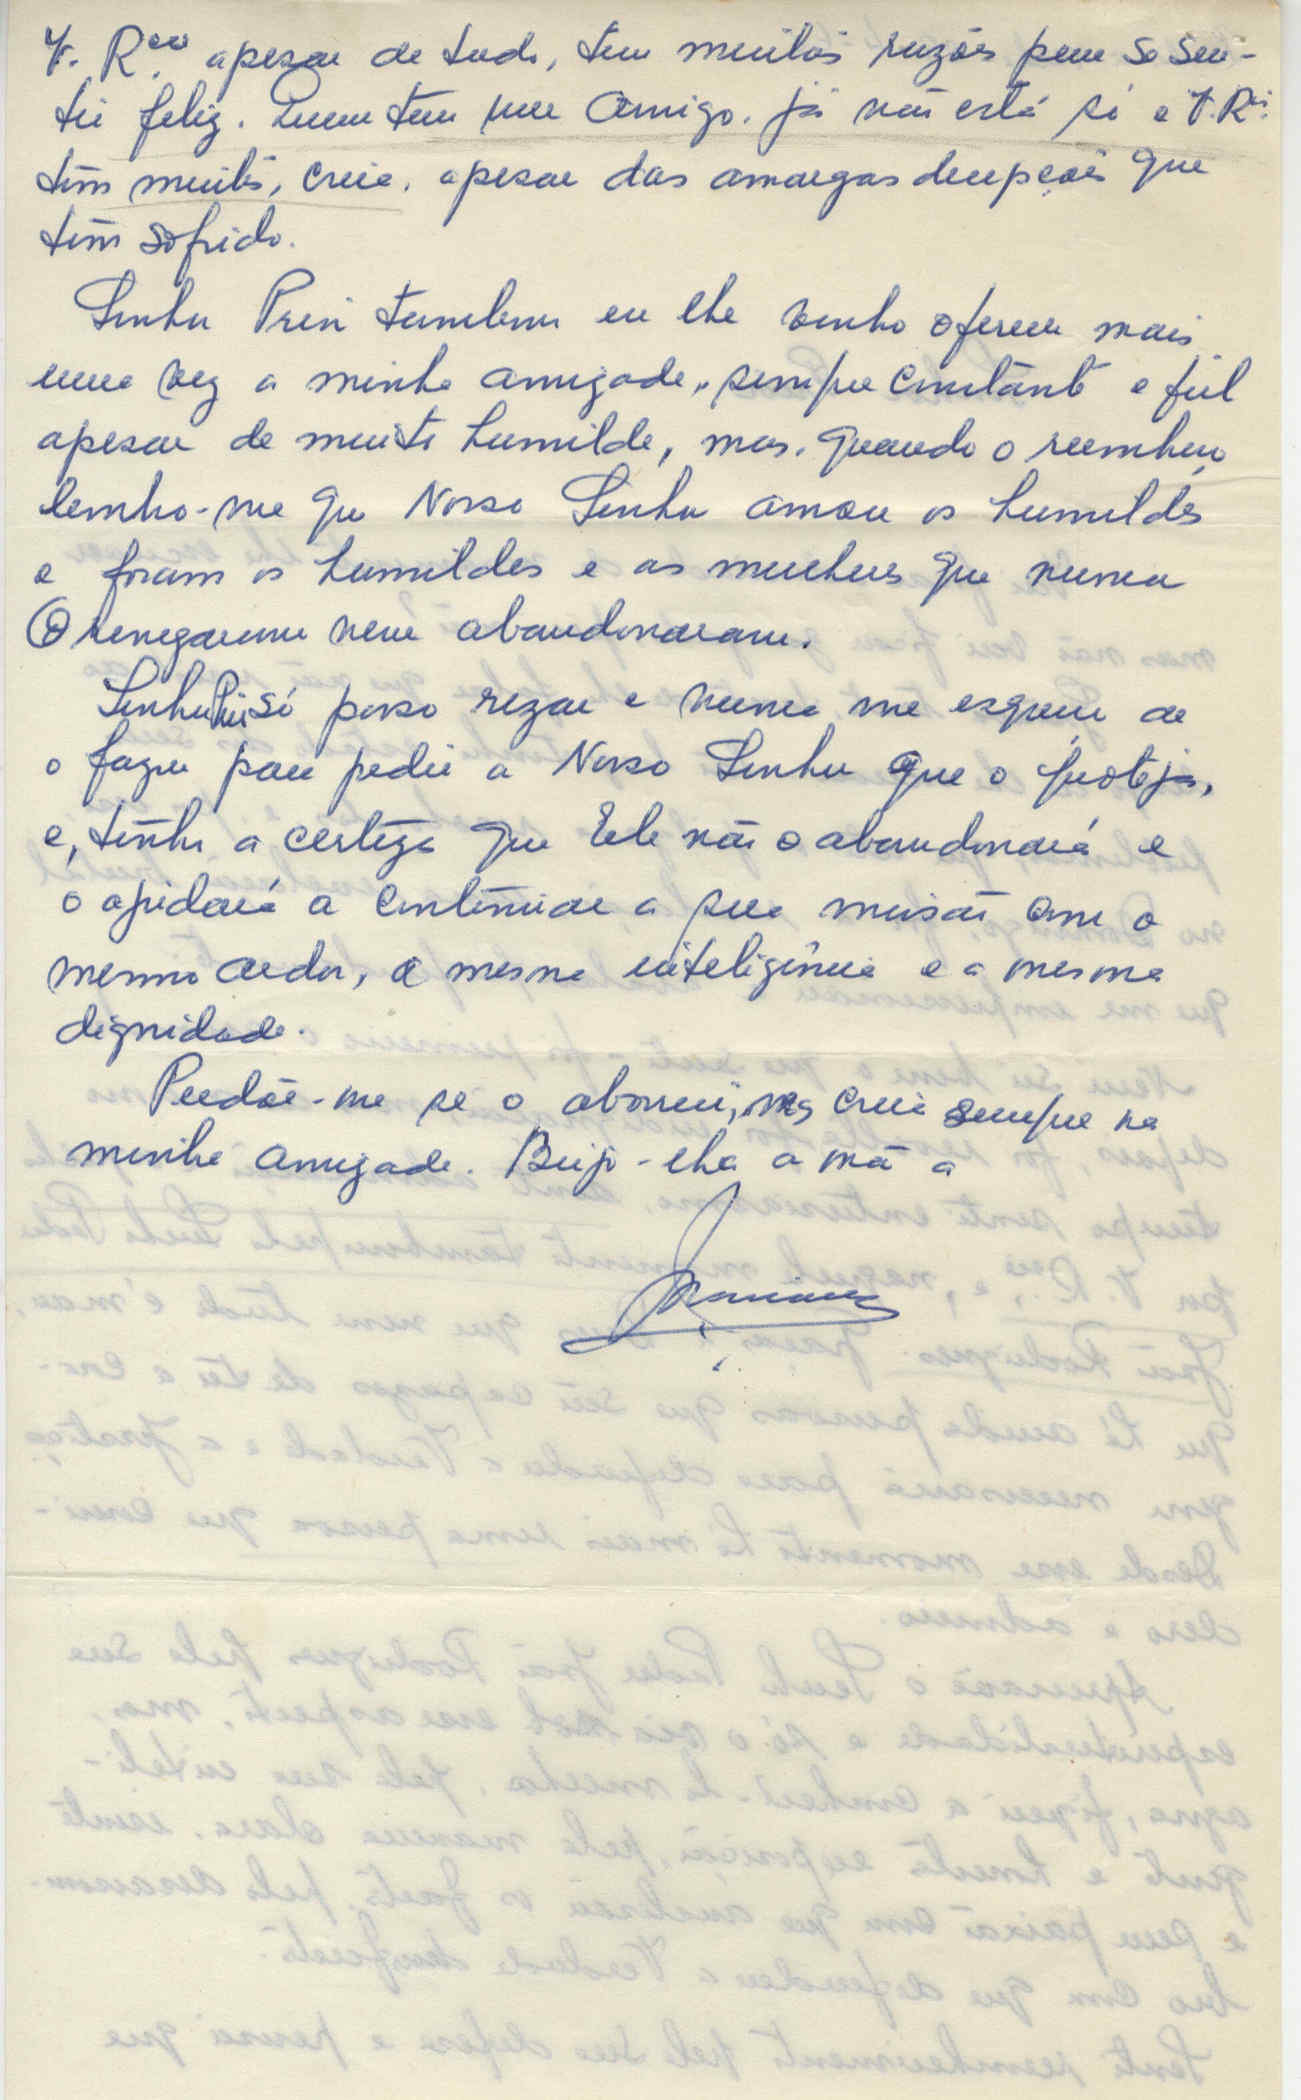 V. Rev.ª apesar de tudo, tem muitas razões para se sen-
tir feliz. Quem tem um Amigo, já não está só e V. Rev.ª
têm muitos, creia, apesar das amargas decepções que
têm sofrido.
Senhor Prior tambem eu lhe venho oferecer mais
uma vez a minha amizade, sempre constante e fiel
apesar de muito humilde, mas, quando o reconheço,
lembro-me que Nosso Senhor amou os humildes
e foram os humildes e as mulheres que nunca
O renegaram nem abandonaram.
Senhor Prior só posso rezar e nunca me esqueço de
o fazer para pedir a Nosso Senhor que o proteja,
e, tenho a certeza que Ele não o abandonará e
o ajudará a continuar a sua missão com o
mesmo ardor, a mesma inteligência e a mesma
dignidade.
Perdõe-me se o aborreci, mas creia sempre na
minha amizade. Beijo-lhe a mão a